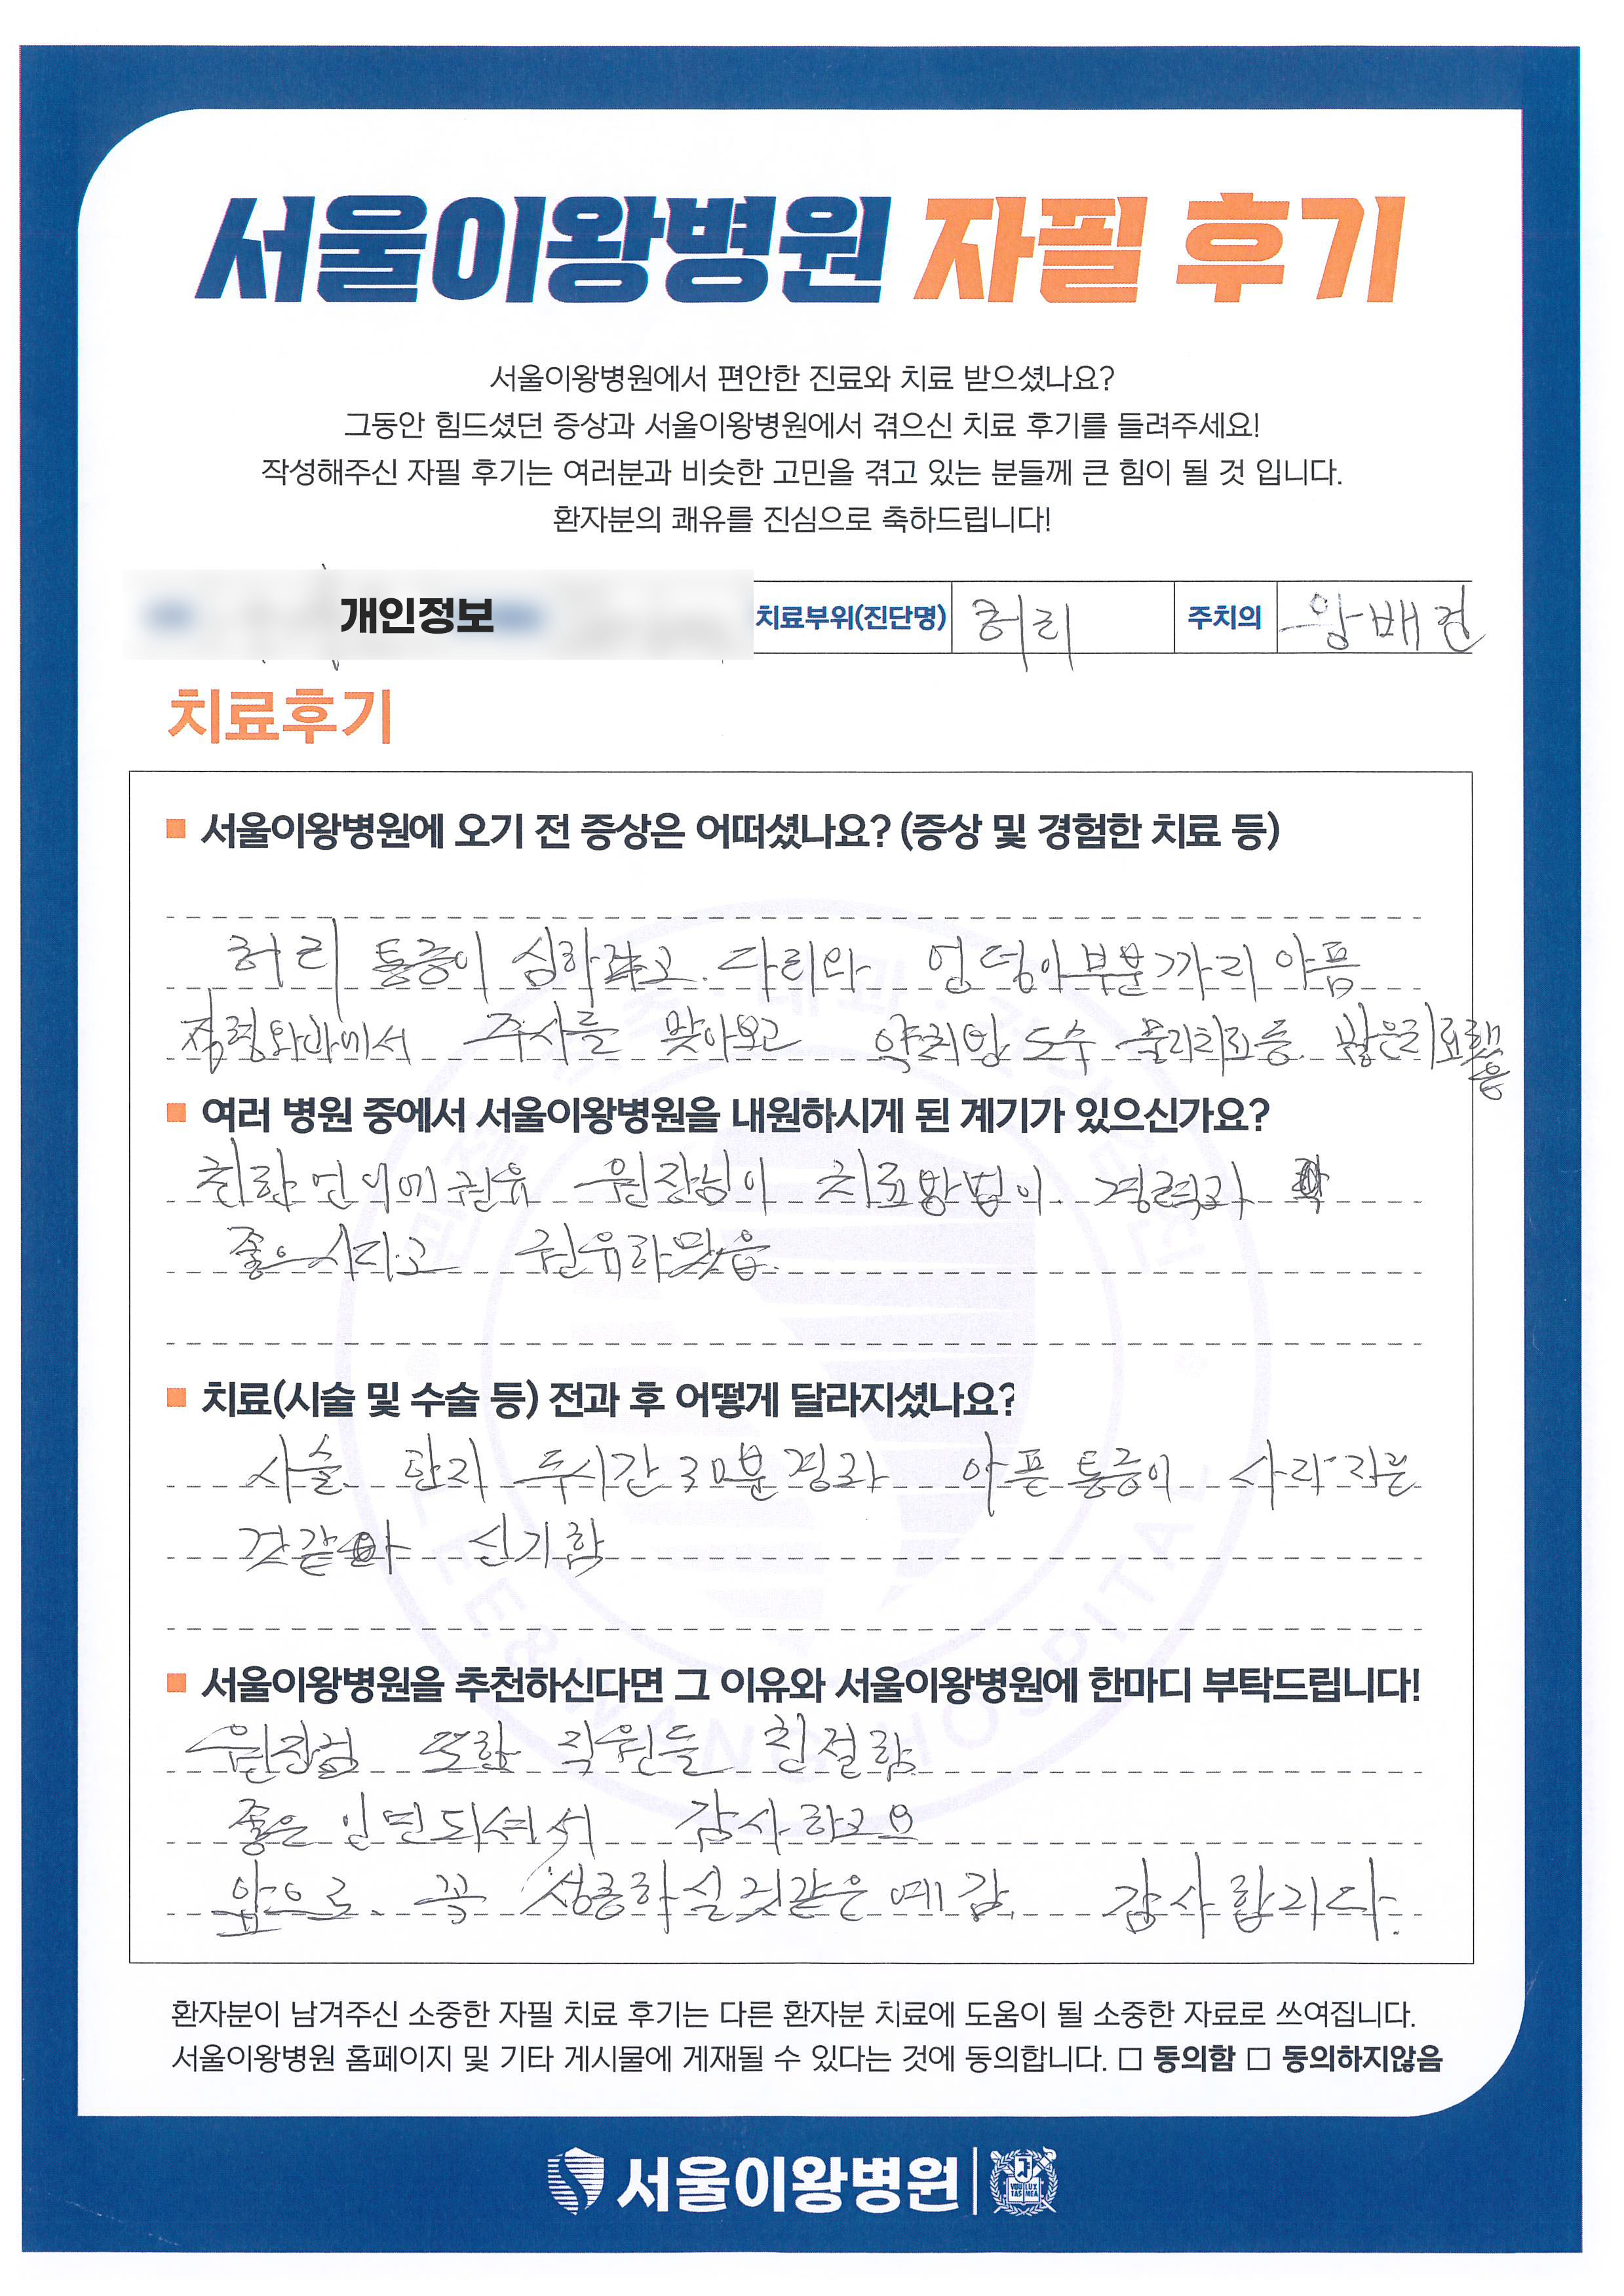 서울이왕병원 자필 후기
서울이왕병원에서 편안한 진료와 치료 받으셨나요?
그동안 힘드셨던 증상과 서울이왕병원에서 겪으신 치료 후기를 들려주세요!
작성해주신 자필 후기는 여러분과 비슷한 고민을 겪고 있는 분들께 큰 힘이 될 것 입니다.
환자분의 쾌유를 진심으로 축하드립니다!
개인정보 치료부위(진단명) 허리 주치의 왕배건
치료후기
서울이왕병원에 오기 전 증상은 어떠셨나요? (증상 및 경험한 치료 등)
허리 통증이 심하고. 다리와 엉덩이부분까지 아픔
주사를 맞아보고 약처방 도수 물리치료등
여러 병원 중에서 서울이왕병원을 내원하시게 된 계기가 있으신가요?
친한 언니에 권유 원장님이 치료방법이 경력과
좋으시다고 권유하였음.
치료(시술 및 수술 등) 전과 후 어떻게 달라지셨나요?
시술 한지 두시간 30분 경과 아픈 통증이 사라지는
것같아 신기함
서울이왕병원을 추천하신다면 그 이유와 서울이왕병원에 한마디 부탁드립니다!
원장님 또한 직원들 친절함
좋은 인연되셔서 감사하고요
앞으로 꼭 성공하실것같은 예감. 감사합니다.
환자분이 남겨주신 소중한 자필 치료 후기는 다른 환자분 치료에 도움이 될 소중한 자료로 쓰여집니다.
서울이왕병원 홈페이지 및 기타 게시물에 게재될 수 있다는 것에 동의합니다. □ 동의함 □ 동의하지않음
서울이왕병원
LEE&WANG HOSPITAL